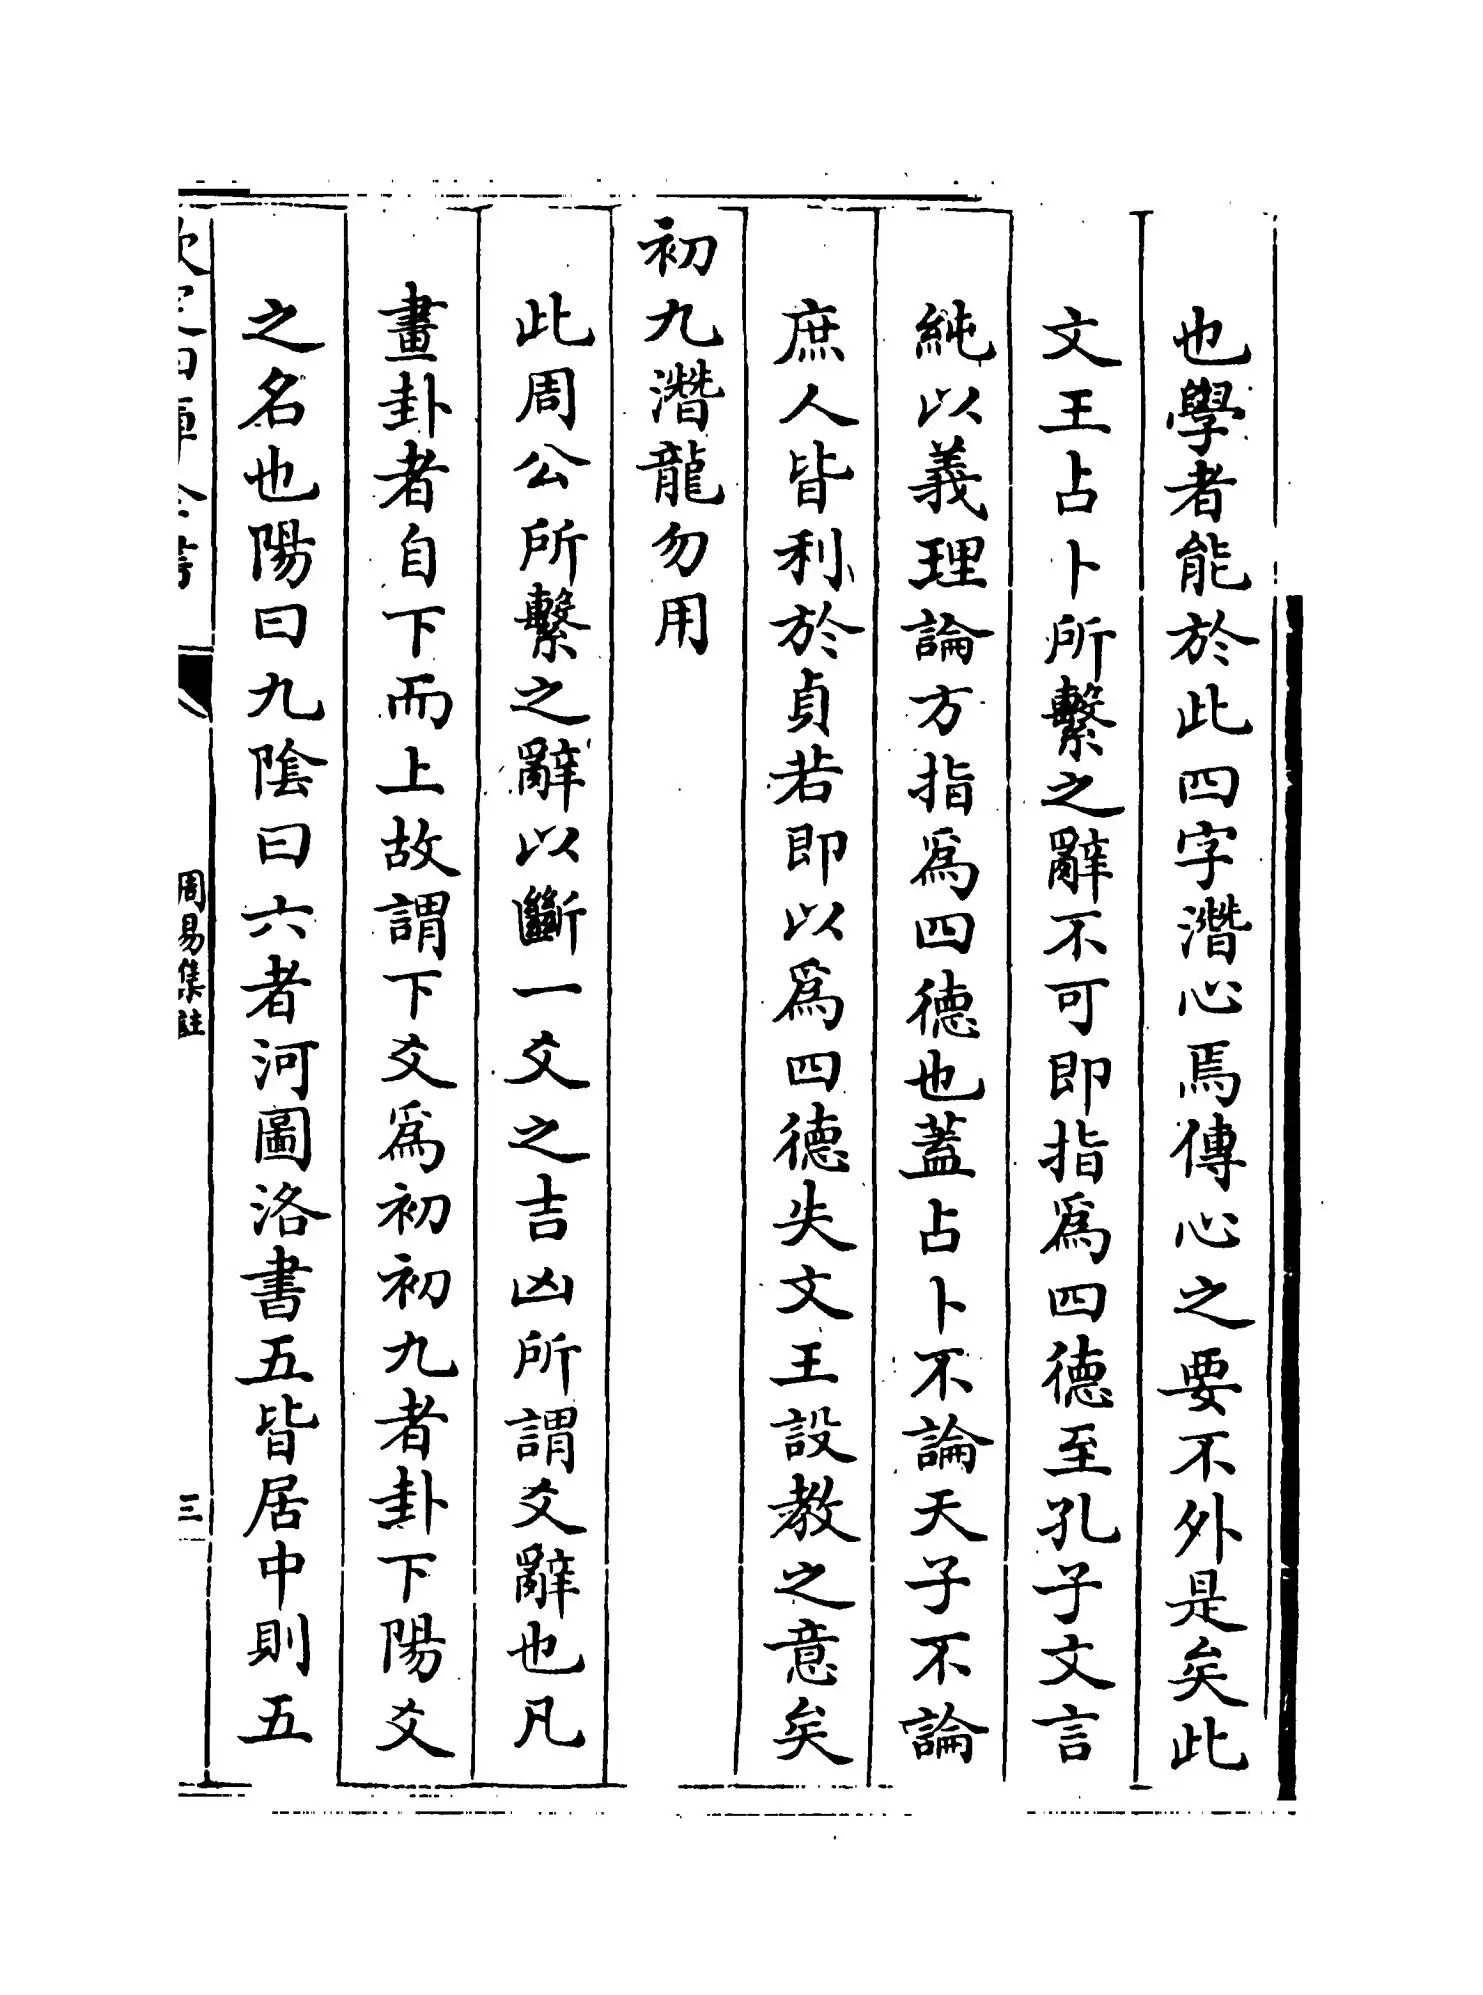 也學者能於此四字潛心焉傳心之要不外是矣此
文王占卜所繫之辭不可即指爲四德至孔子文言
純以義理論方指爲四德也蓋占卜不論天子不論
庶人皆利於貞若即以爲四德失文王設教之意矣
初九潛龍勿用
此周公所繫之辭以斷一爻之吉凶所謂爻辭也凡
畫卦者自下而上故謂下爻爲初初九者卦下陽爻
之名也陽曰九陰曰六者河圖洛書五皆居中則五
欽定四庫全書
周易集註
三